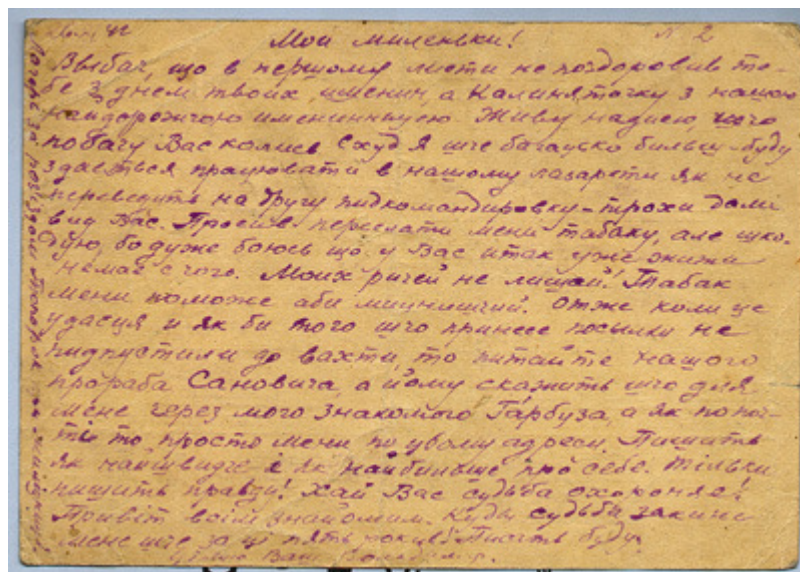 42
Мои миленьки!
N 2
Выбач, що в першому листи не поздоровив те-
бе з днем твоих именин, а Калиняточку з нашою
найдорожчою именинницею. Живу надиею, що
побачу Вас колись. Схуд я ще багацько бильш. Буду
здається працювати в нашому лазарети як не
переведуть на другу пидкомандировку - трохи дали
вид Вас. Просив переслати мени табаку, але шко-
дую, бо дуже боюсь що у Вас и так уже жити
немає с чого. Моих ричей не лишай! Табак
мени поможе аби мицниший. Отже коли це
удасця и як би того що принесе посылки не
пидпустили до вахти, то питайте нашого
прораба Сановича, а йому скажить що для
мене через мого знакомого Гарбуза, а як по поч-
ти то просто мени по цьому адреси. Пишить
як найшвидче и як найбильше про себе. Тильки
пишить правду! Хай Вас судьба охороняє!
Привіт всім знайомим. Куды судьба закине
мене ще за ци пять рокив! Писать буду.
Ваш